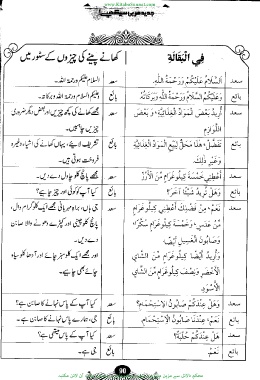 www.KitaboSunnat.com
کھانے پینے کی چیزوں کے سٹور میں
فِي الْبَقَالَةِ
سعد
السلام علیکم ورحمۃ اللہ۔
سعد
اَلسَّلَامُ عَلَيْكُمْ وَرَحْمَةُ اللّٰهِ
بائع
وعلیکم السلام ورحمۃ اللہ وبرکاتہ۔
بائع
وَعَلَيْكُمُ السَّلَامُ وَرَحْمَةُ اللّٰهِ وَبَرَكَاتُهُ
سعد
مجھے کھانے کی کچھ چیزیں اور بعض دیگر ضروری
چیزیں چاہئیں۔
سعد
أُرِيدُ بَعْضَ الْمَوَادِّ الْغِذَائِيَّةِ، وَ بَعْضَ
اللَّوَازِمِ
بائع
تشریف لایئے، یہاں کھانے کی اشیاء وغیرہ
فروخت ہوتی ہیں۔
بائع
تَفَضَّلْ، هٰذَا مَحَلٌّ لِبَيْعِ الْمَوَادِّ الْغِذَائِيَّةِ
وَغَيْرِ ذٰلِكَ.
سعد
مجھے پانچ کلو چاول دے دیں۔
سعد
أَعْطِنِي خَمْسَةَ كِيلُوغِرَامٍ مِنَ الْأَرُزِّ
بائع
کیا آپ کو کوئی اور چیز چاہیے؟
بائع
وَهَلْ تُرِيدُ شَيْئًا آخَرَ؟
سعد
جی ہاں، براہ مہربانی مجھے ایک کلوگرام دال،
پانچ کلو چینی اور کپڑے دھونے والا صابن
دے دیں۔
اور مجھے ایک کلو سبز چائے اور آدھا کلو سیاہ
چائے بھی چاہیے۔
سعد
نَعَمْ، مِنْ فَضْلِكَ أَعْطِنِي كِيلُوغِرَامٍ
مِنْ عَدَسٍ، وَخَمْسَةَ كِيلُوغِرَامٍ سُكَّرًا،
وَصَابُونَ الْغَسِيلِ أَيْضًا.
وَأُرِيدُ أَيْضًا كِيلُوغِرَامٍ مِنَ الشَّايِ
الْأَخْضَرِ وَنِصْفَ كِيلُوغِرَامٍ مِنَ الشَّايِ
الْأَسْوَدِ
سعد
کیا آپ کے پاس نہانے کا صابن ہے؟
سعد
وَهَلْ عِنْدَكُمْ صَابُونُ الْإِسْتِحْمَامِ؟
بائع
جی، ہمارے پاس نہانے کا صابن ہے۔
بائع
نَعَمْ، عِنْدَنَا صَابُونُ الْإِسْتِحْمَامِ
سعد
کیا آپ کے پاس میتھی ہے؟
سعد
هَلْ عِنْدَكُمْ حُلْبَةٌ؟
بائع
جی ہے۔
بائع
نَعَمْ
90